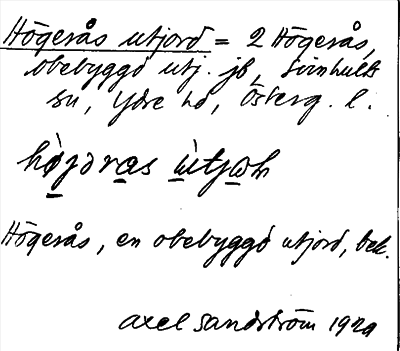 Högerås utjord = 2 Högerås,
obebyggd utj. jb, Svinhults
sn, Ydre hd, Österg. l.
hø̀jəras ùtjoh
Högerås, en obebyggd utjord, bek.
Axel Sandström 1929